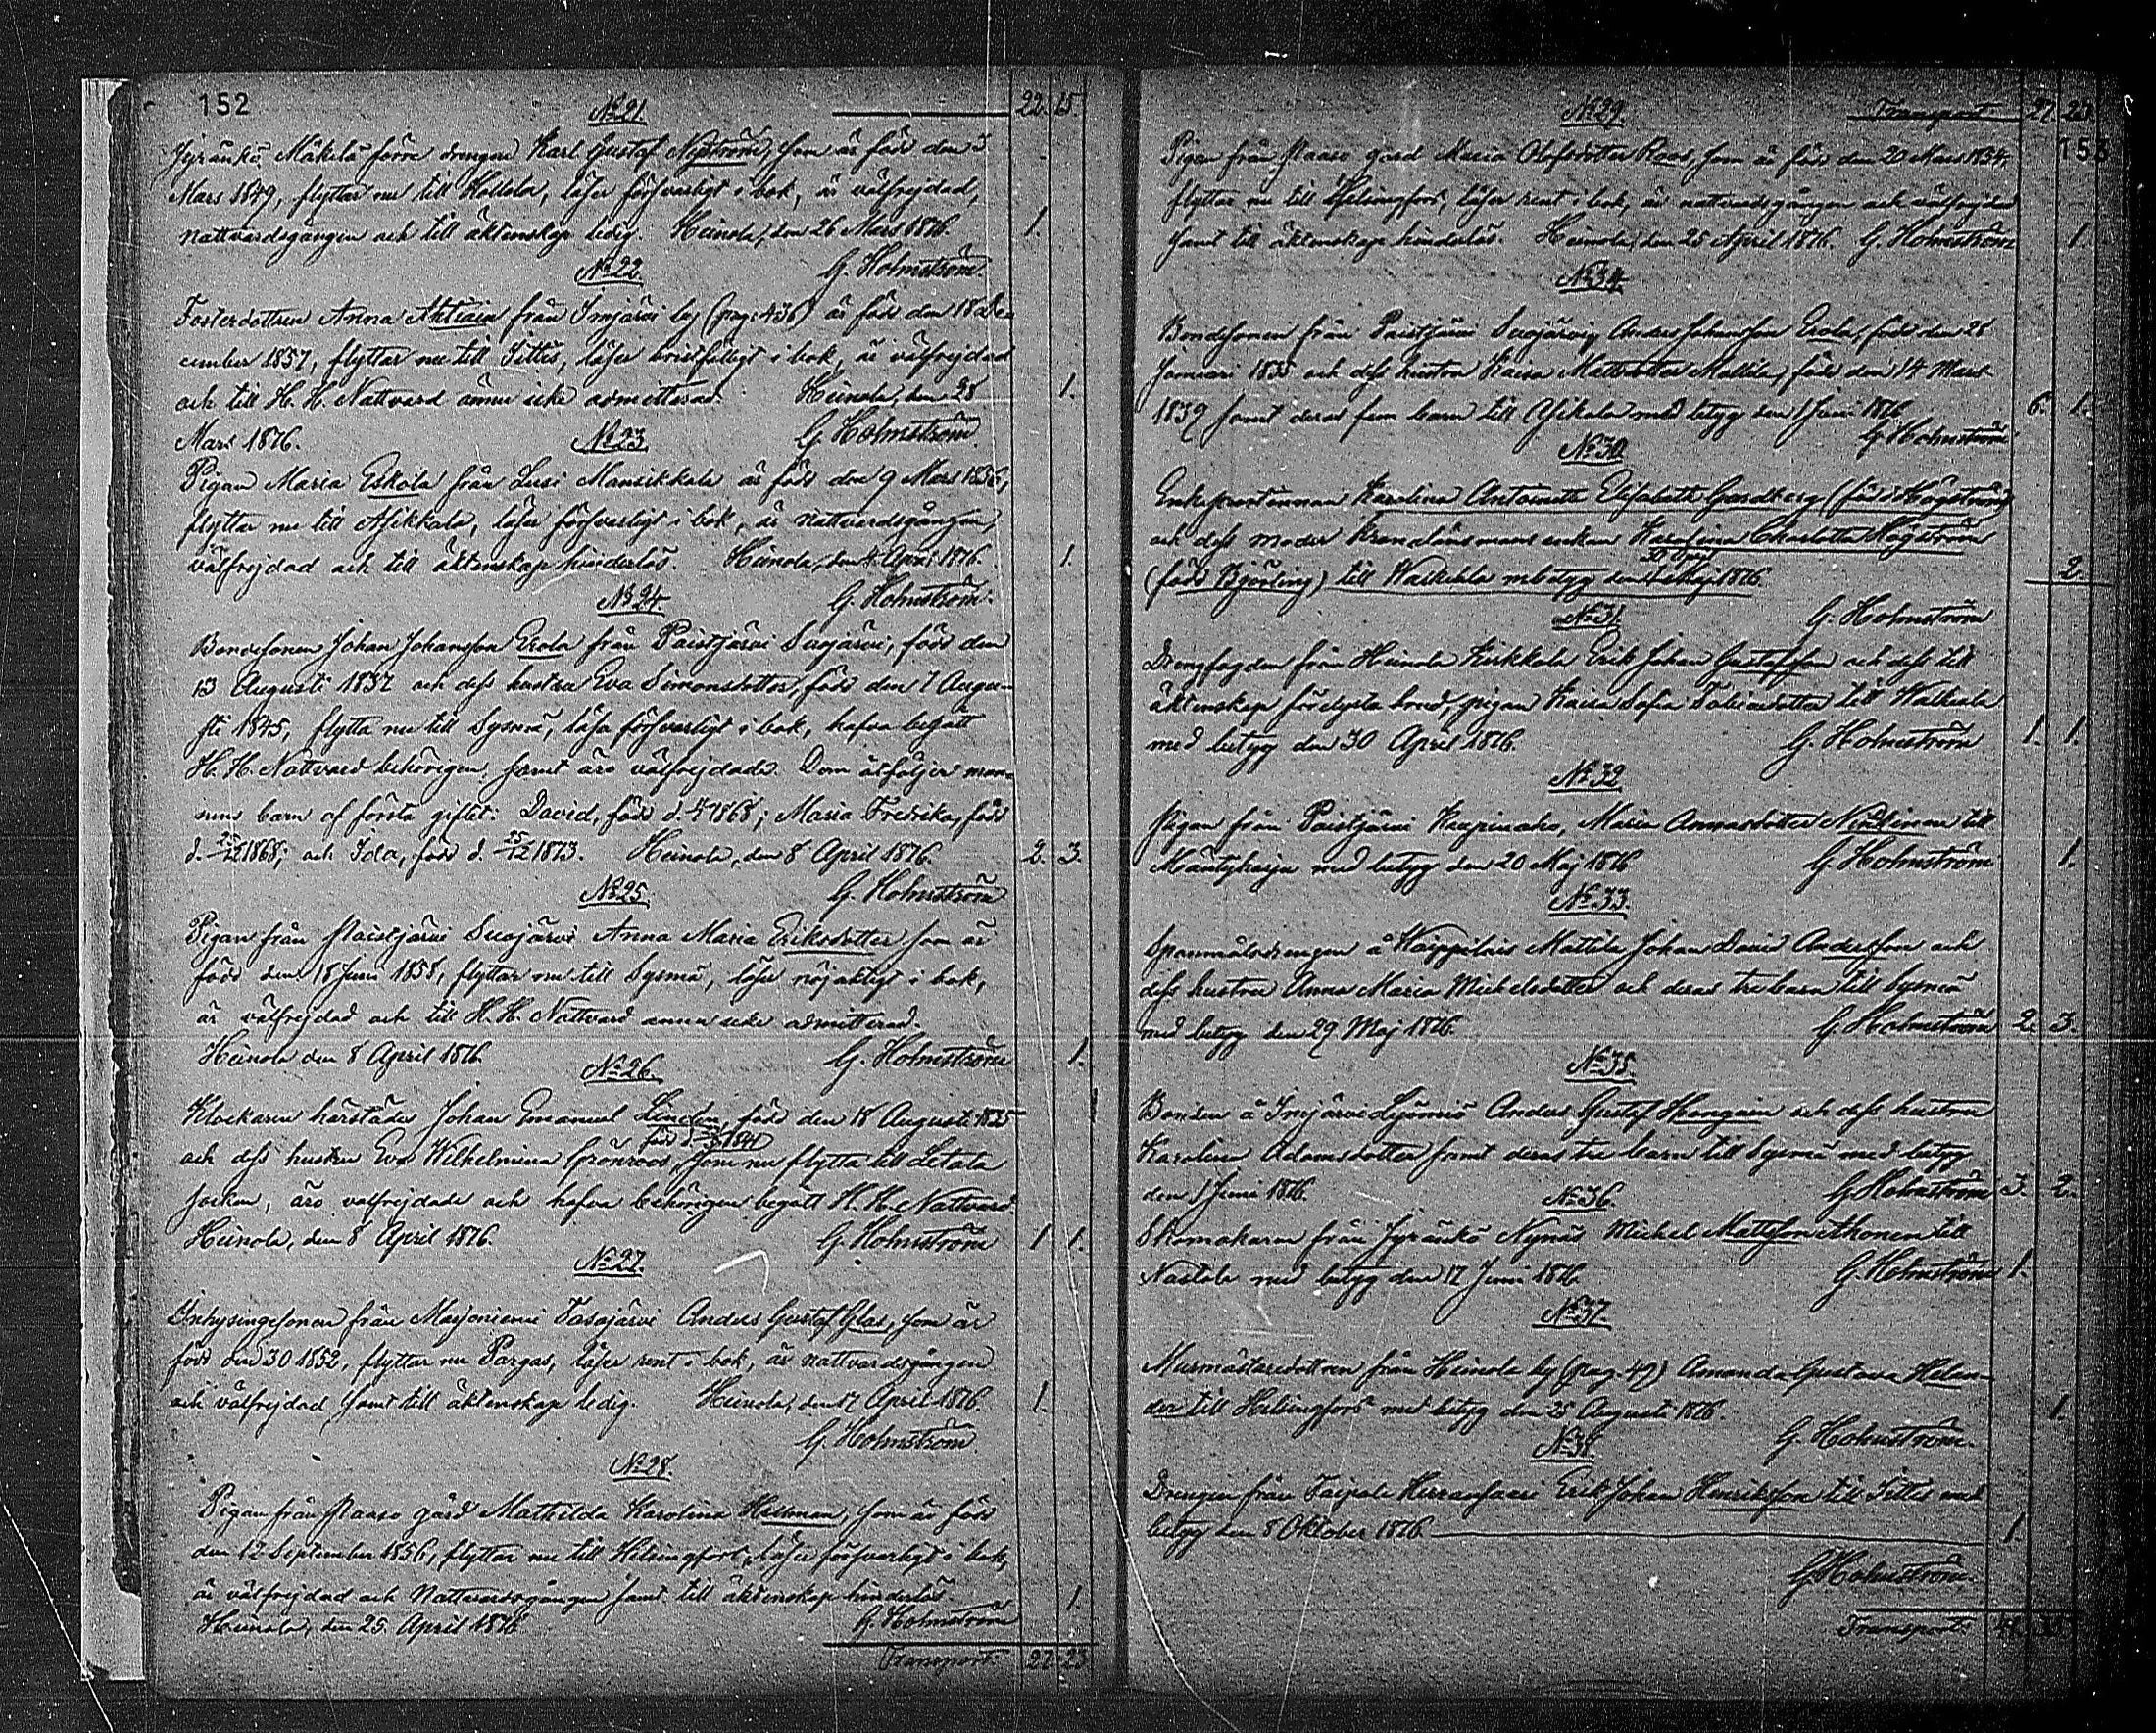 152
№ 21. 22. 15.
Jyränkö Mäkelä förre drengen Karl Gustaf Nyström, som är född den
Mars 1849, flyttar nu till Hollola, läser försvarligt i bok, är välfrejdad,
nattvardsgången och till äktenskap ledig. Heinola, den 26 Mars 1876. 1.
№ 22. G. Holmström.
Fosterdottren Anna Ahtiain från Imjärvi by (pag: 436) är född den 18 De-
cember 1857, flyttar nu till Sittis, läser bristfälligt i bok, är välfrejdad
och till H. H. Nattvard ännu icke admitterad. Heinola, den 28 1.
Mars 1876. № 23. G. Holmström.
Pigan Maria Eskola från Lusi Mansikkala är född den 9 Mars 1856,
flyttar nu till Asikkala, läser försvarligt i bok, är nattvardsgången,
välfrejdad och till äktenskap hinderlös. Heinola, den 4 April 1876. 1.
№ 24. G. Holmström.
Bondesonen Johan Johansson Erola från Paistjärvi Suojärvi, född den
13 Augusti 1837 och dess hustru Eva Simonsdotter, född den 7 Augu-
sti 1845, flytta nu till Sysmä, läsa försvarligt i bok, hafva begått
H. H. Nattvard behörigen samt äro välfrejdade. Dem åtföljer man-
nens barn af första giftet: David, född d. 1868; Maria Fredrika, född
d. 1868; och Ida, född d. 25/12 1873. Heinola, den 8 April 1876. 2. 3.
№ 25. G. Holmström
Pigan från Paistjärvi Suojärvi Anna Maria Eriksdotter som är
född den 18 Juni 1858, flyttar nu till Sysmä, läser nöjaktigt i bok,
är välfrejdad och till H. H. Nattvard ännu icke admitterad.
Heinola den 8 April 1876. G. Holmström 1.
№ 26.
Klockaren härstädes Johan Emanuel född den 18 Augusti 1835
och dess hustru Eva Wilhelmina Grönroos, som nu flytta till Letala
socken, äro välfrejdade och hafva behörigen begått H. H. Nattvard.
Heinola, den 8 April 1876. G. Holmström 1. 1.
№ 27.
Inhysingesonen från Marjoniemi Tasajärvi Anders Gustaf Glas, som är
född den 30 1852, flyttar nu Pargas, läser rent i bok, är nattvardsgången
och välfrejdad samt till äktenskap ledig. Heinola, den 17 April 1876. 1.
G. Holmström
№ 28.
Pigan från Paaso gård Mathilda Karolina Hellman, som är född
den 12 September 1856, flyttar nu till Helsingfors, läser försvarligt i bok,
är välfrejdad och Nattvardsgången samt till äktenskap hinderlös. 1.
Heinola, den 25 April 1876. G. Holmström
Transport 27. 23
№ 29. Transport 27. 23
153
Pigan från Paaso gård Maria Olofsdotter Roos, som är född den 20 Mars 1854,
flyttar nu till Helsingfors, läser rent i bok, är nattvardsgången och välfrejdad
samt till äktenskap hinderlös. Heinola, den 25 April 1876. G. Holmström 1.
№ 34.
Bondesonen från Paistjärvi Suojärvi Anders Johansson Erola, född den 28
Januari 1835 och dess hustru Kaisa Mattsdotter Mallila, född den 14 Mars
1839 samt deras fem barn till Asikkala med betyg den 1 Juni 1876 6. 1.
№ 30. G. Holmström
Enkeprostinnan Karolina Antoinette Elisabeth Gardberg (född Högström)
och dess moder Kronolänsmans enkan Karolina Charlotta Högström
(född Björling) till Walkeala m betyg den Maj 1876 2.
№ 31. G. Holmström
Drengfogden från Heinola Kirkkola Erik Johan Gustafsson och dess till
äktenskap förelysta brud, pigan Kaisa Sofia Tobiasdotter till Walkeala
med betyg den 30 April 1876. G. Holmström 1. 1.
№ 32.
Pigan från Paistjärvi Maria Annasdotter till
Mäntyharju med betyg den 20 Maj 1876 G. Holmström 1.
№ 33.
Spanmålsdrengen å Mattila Johan David Andersson och
dess hustru Anna Maria Michelsdotter och deras tre barn till Sysmä
med betyg den 29 Maj 1876. G. Holmström 2. 3.
№ 35.
Bonden å Imjärvi Anders Gustaf Hongain och dess hustru
Karolina Adamsdotter samt deras tre barn till Sysmä med betyg
den 1 Juni 1876. № 36. G. Holmström 3. 2.
Skomakaren från Jyränkö Nynäs Michel Mattsson Ahonen till
Nastola med betyg den 17 Juni 1876 G. Holmström 1.
№ 37.
Murmästaredottren från Heinola by (pag. 49) Amanda Gustava Helen-
der till Helsingfors med betyg den 25 Augusti 1876. 1.
№ 38. G. Holmström.
Drengen från Taipale Hirvansaari Erik Johan Henriksson till Sittis med
betyg den 8 Oktober 1876. 1
G. Holmström.
Transport